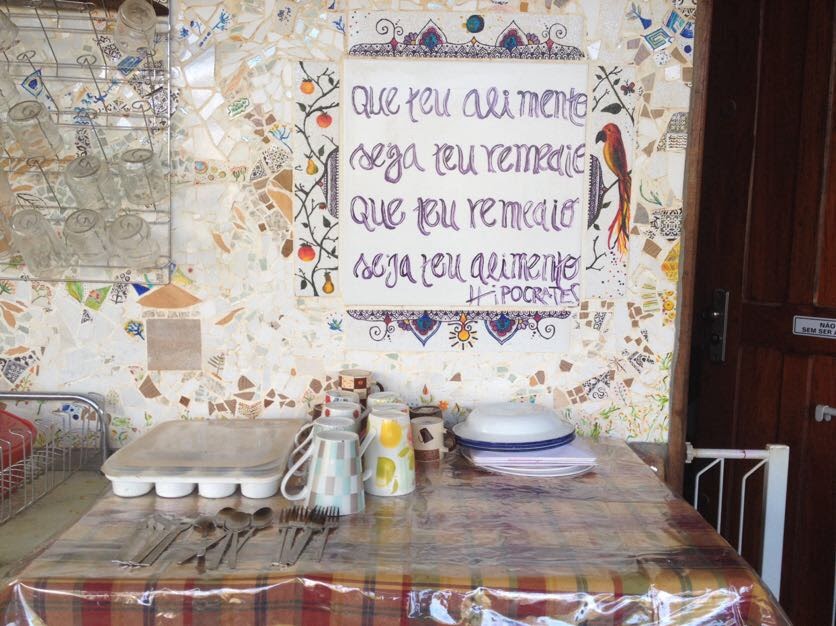 QUE teu alimento
seja teu remedio
QUE teu remedio
seja teu alimento
HiPOCRATES
NÃO
SEM SER A